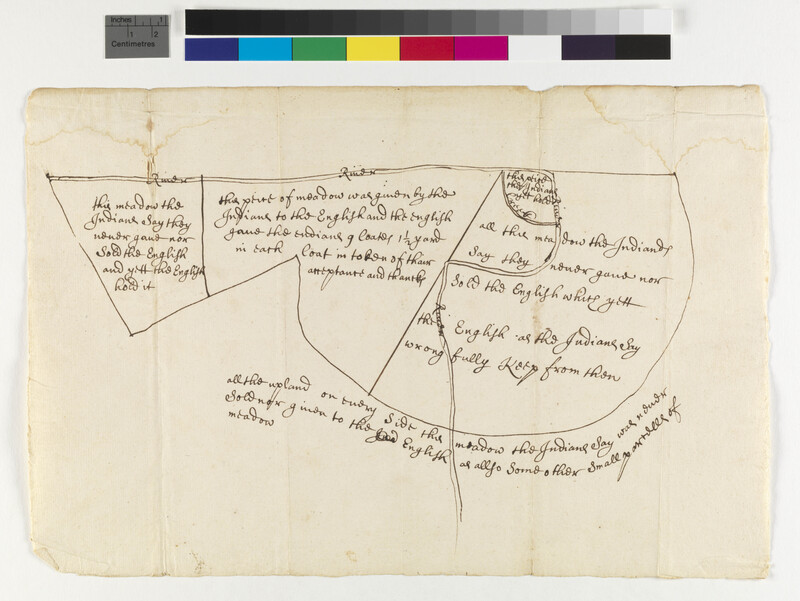 Inches
1
1
2
Centimetres
River
River
this meadow the
Indians Say they
never gave nor
Sold the English
and yett the English
hold it
this peice of meadow was given by the
Indians to the English and the english
gave the endians 9 Coates 1½ yard
in each Coat in token of thair
acceptance and thanks
this peice
the Indians
yett keep
all this meadow the Indians
Say they never gave nor
Sold the English which yett
the English as the Indians Say
wrong fully Keep from them
River
all the upland on every Side this meadow the Indians Say was never
Sold nor given to the English as allso Some other Small parcells of
meadow